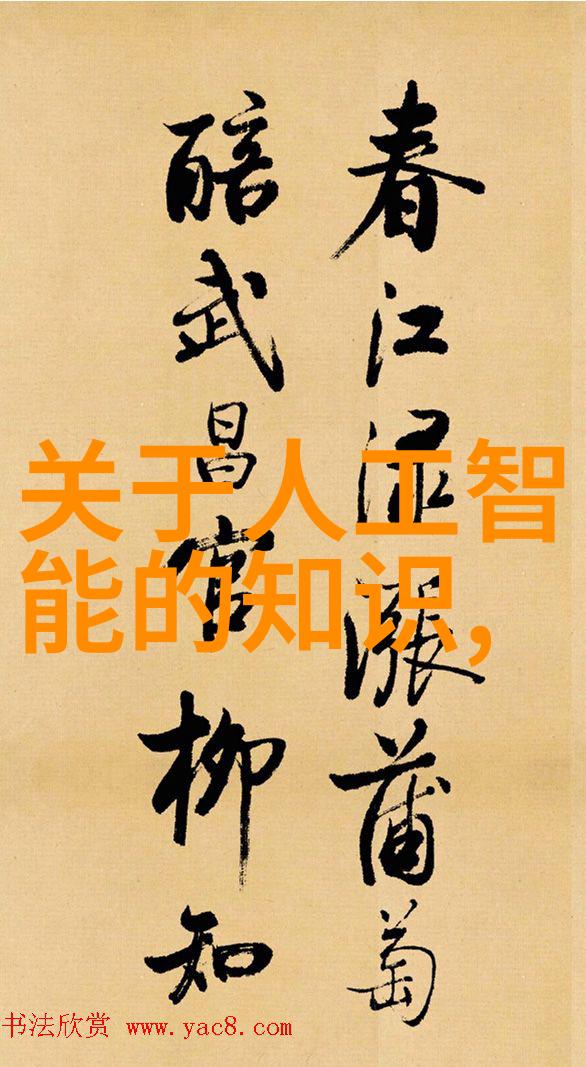 春江渌涨蒲萄
醅武昌官柳知
关于人工智
能的知识,
书法欣赏 www.yac8.com